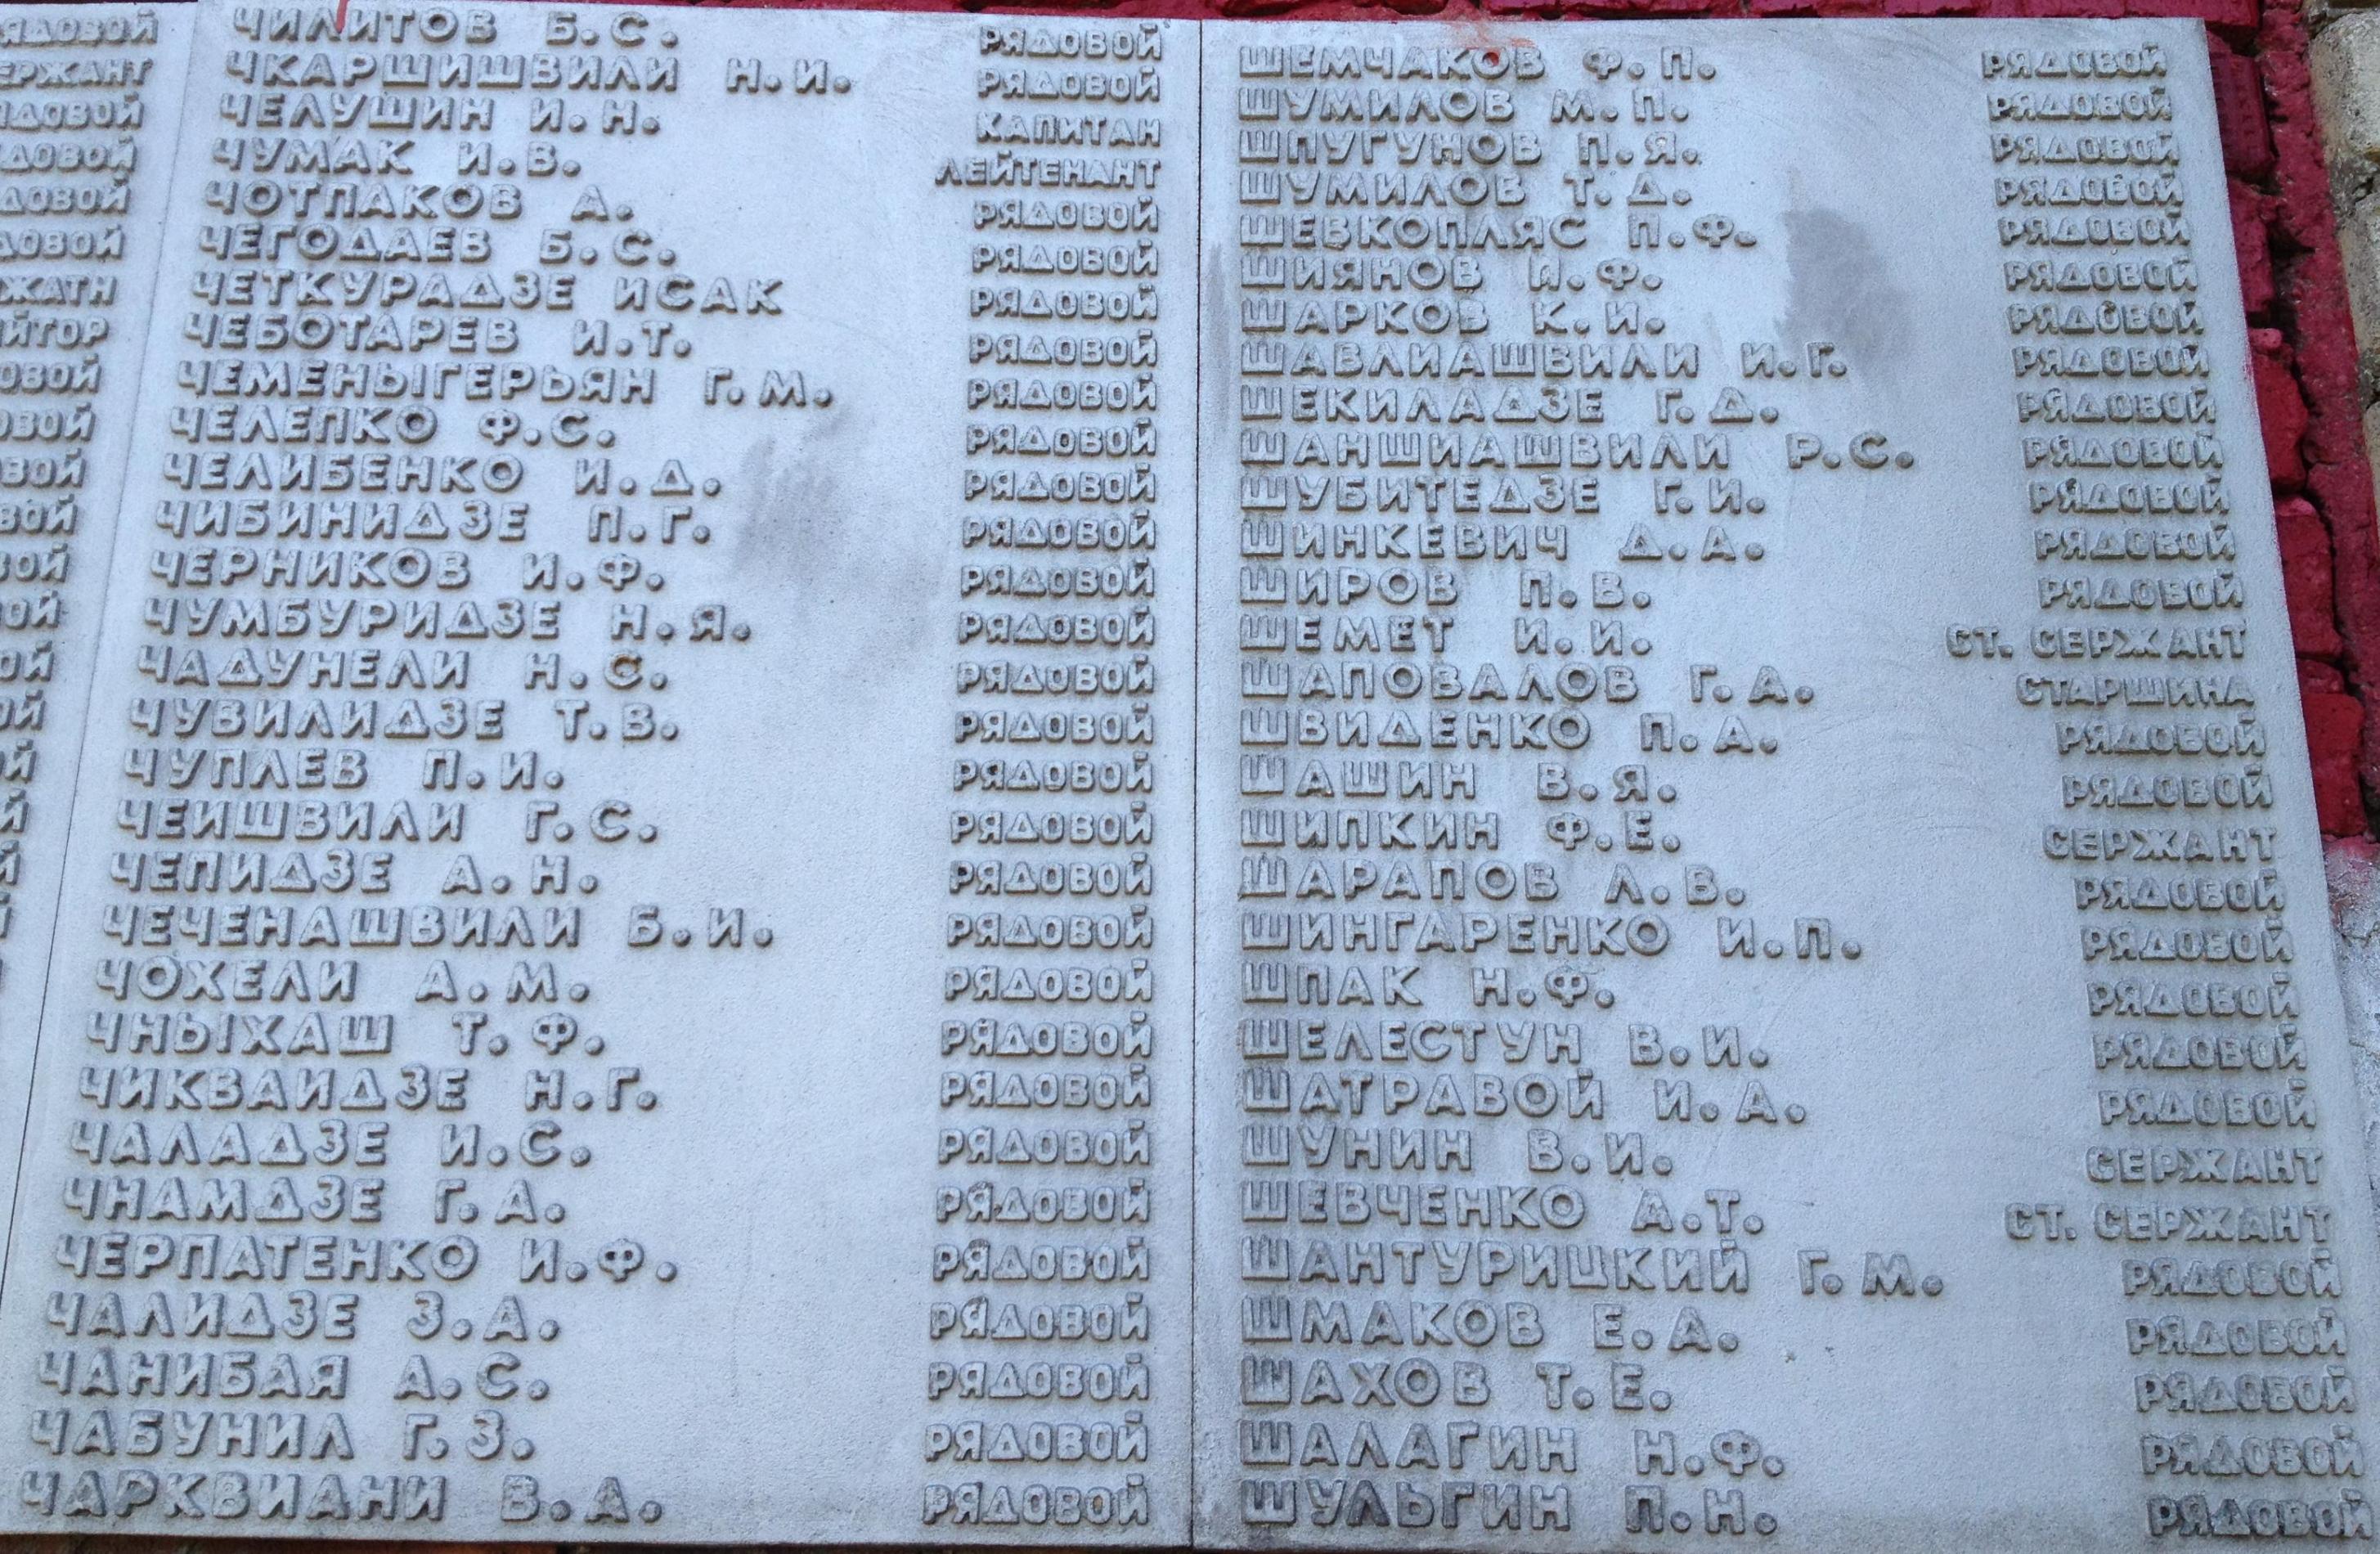 ЧИЛИТОВ Б.С. РЯДОВОЙ
ЧКАРШИШВИЛИ Н.И. РЯДОВОЙ
ЧЕЛУШИН И.Н. КАПИТАН
ЧУМАК И.В. ЛЕЙТЕНАНТ
ЧОТПАКОВ А. РЯДОВОЙ
ЧЕГОДАЕВ Б.С. РЯДОВОЙ
ЧЕТКУРАДЗЕ ИСАК РЯДОВОЙ
ЧЕБОТАРЕВ И.Т. РЯДОВОЙ
ЧЕМЕНЫГЕРЬЯН Г.М. РЯДОВОЙ
ЧЕЛЕПКО Ф.С. РЯДОВОЙ
ЧЕЛИБЕНКО И.Д. РЯДОВОЙ
ЧИБИНИДЗЕ П.Г. РЯДОВОЙ
ЧЕРНИКОВ И.Ф. РЯДОВОЙ
ЧУМБУРИДЗЕ Н.Я. РЯДОВОЙ
ЧАДУНЕЛИ Н.С. РЯДОВОЙ
ЧУВИЛИДЗЕ Т.В. РЯДОВОЙ
ЧУПЛЕВ П.И. РЯДОВОЙ
ЧЕИШВИЛИ Г.С. РЯДОВОЙ
ЧЕПИДЗЕ А.Н. РЯДОВОЙ
ЧЕЧЕНАШВИЛИ Б.И. РЯДОВОЙ
ЧОХЕЛИ А.М. РЯДОВОЙ
ЧНЫХАШ Т.Ф. РЯДОВОЙ
ЧИКВАИДЗЕ Н.Г. РЯДОВОЙ
ЧАЛАДЗЕ И.С. РЯДОВОЙ
ЧНАМДЗЕ Г.А. РЯДОВОЙ
ЧЕРПАТЕНКО И.Ф. РЯДОВОЙ
ЧАЛИДЗЕ З.А. РЯДОВОЙ
ЧАНИБАЯ А.С. РЯДОВОЙ
ЧАБУНИЛ Г.З. РЯДОВОЙ
ЧАРКВИАНИ В.А. РЯДОВОЙ
ШЕМЧАКОВ Ф.П. РЯДОВОЙ
ШУМИЛОВ М.П. РЯДОВОЙ
ШПУГУНОВ П.Я. РЯДОВОЙ
ШУМИЛОВ Т.Д. РЯДОВОЙ
ШЕВКОПЛЯС П.Ф. РЯДОВОЙ
ШИЯНОВ И.Ф. РЯДОВОЙ
ШАРКОВ К.И. РЯДОВОЙ
ШАВЛИАШВИЛИ И.Г. РЯДОВОЙ
ШЕКИЛАДЗЕ Г.Д. РЯДОВОЙ
ШАНШИАШВИЛИ Р.С. РЯДОВОЙ
ШУБИТЕДЗЕ Г.И. РЯДОВОЙ
ШИНКЕВИЧ Д.А. РЯДОВОЙ
ШИРОВ П.В. РЯДОВОЙ
ШЕМЕТ И.И. СТ. СЕРЖАНТ
ШАПОВАЛОВ Г.А. СТАРШИНА
ШВИДЕНКО П.А. РЯДОВОЙ
ШАШИН В.Я. РЯДОВОЙ
ШИПКИН Ф.Е. СЕРЖАНТ
ШАРАПОВ Л.В. РЯДОВОЙ
ШИНГАРЕНКО И.П. РЯДОВОЙ
ШПАК Н.Ф. РЯДОВОЙ
ШЕЛЕСТУН В.И. РЯДОВОЙ
ШАТРАВОЙ И.А. РЯДОВОЙ
ШУНИН В.И. СЕРЖАНТ
ШЕВЧЕНКО А.Т. СТ. СЕРЖАНТ
ШАНТУРИЦКИЙ Г.М. РЯДОВОЙ
ШМАКОВ Е.А. РЯДОВОЙ
ШАХОВ Т.Е. РЯДОВОЙ
ШАЛАГИН Н.Ф. РЯДОВОЙ
ШУЛЬГИН П.Н. РЯДОВОЙ